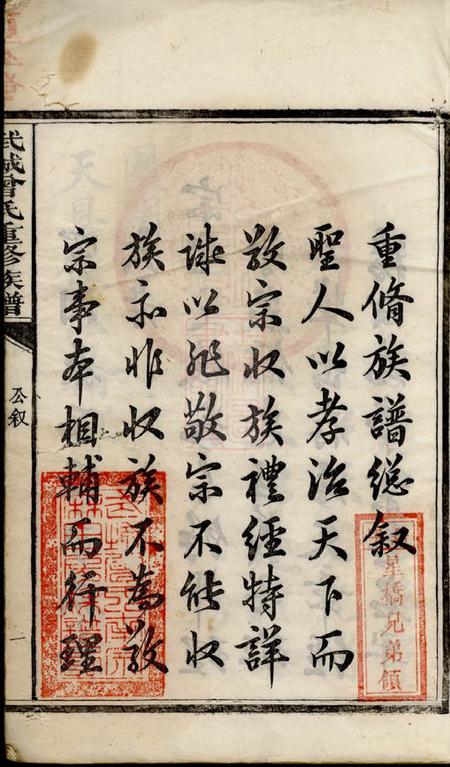 重脩族譜總叙
聖人以孝治天下而
敬宗收族禮經特詳
誠以非敬宗不能收
族亦非收族不為敬
宗事本相輔而行理
星橋兄弟領
武城曾氏重修族譜
公叙
一